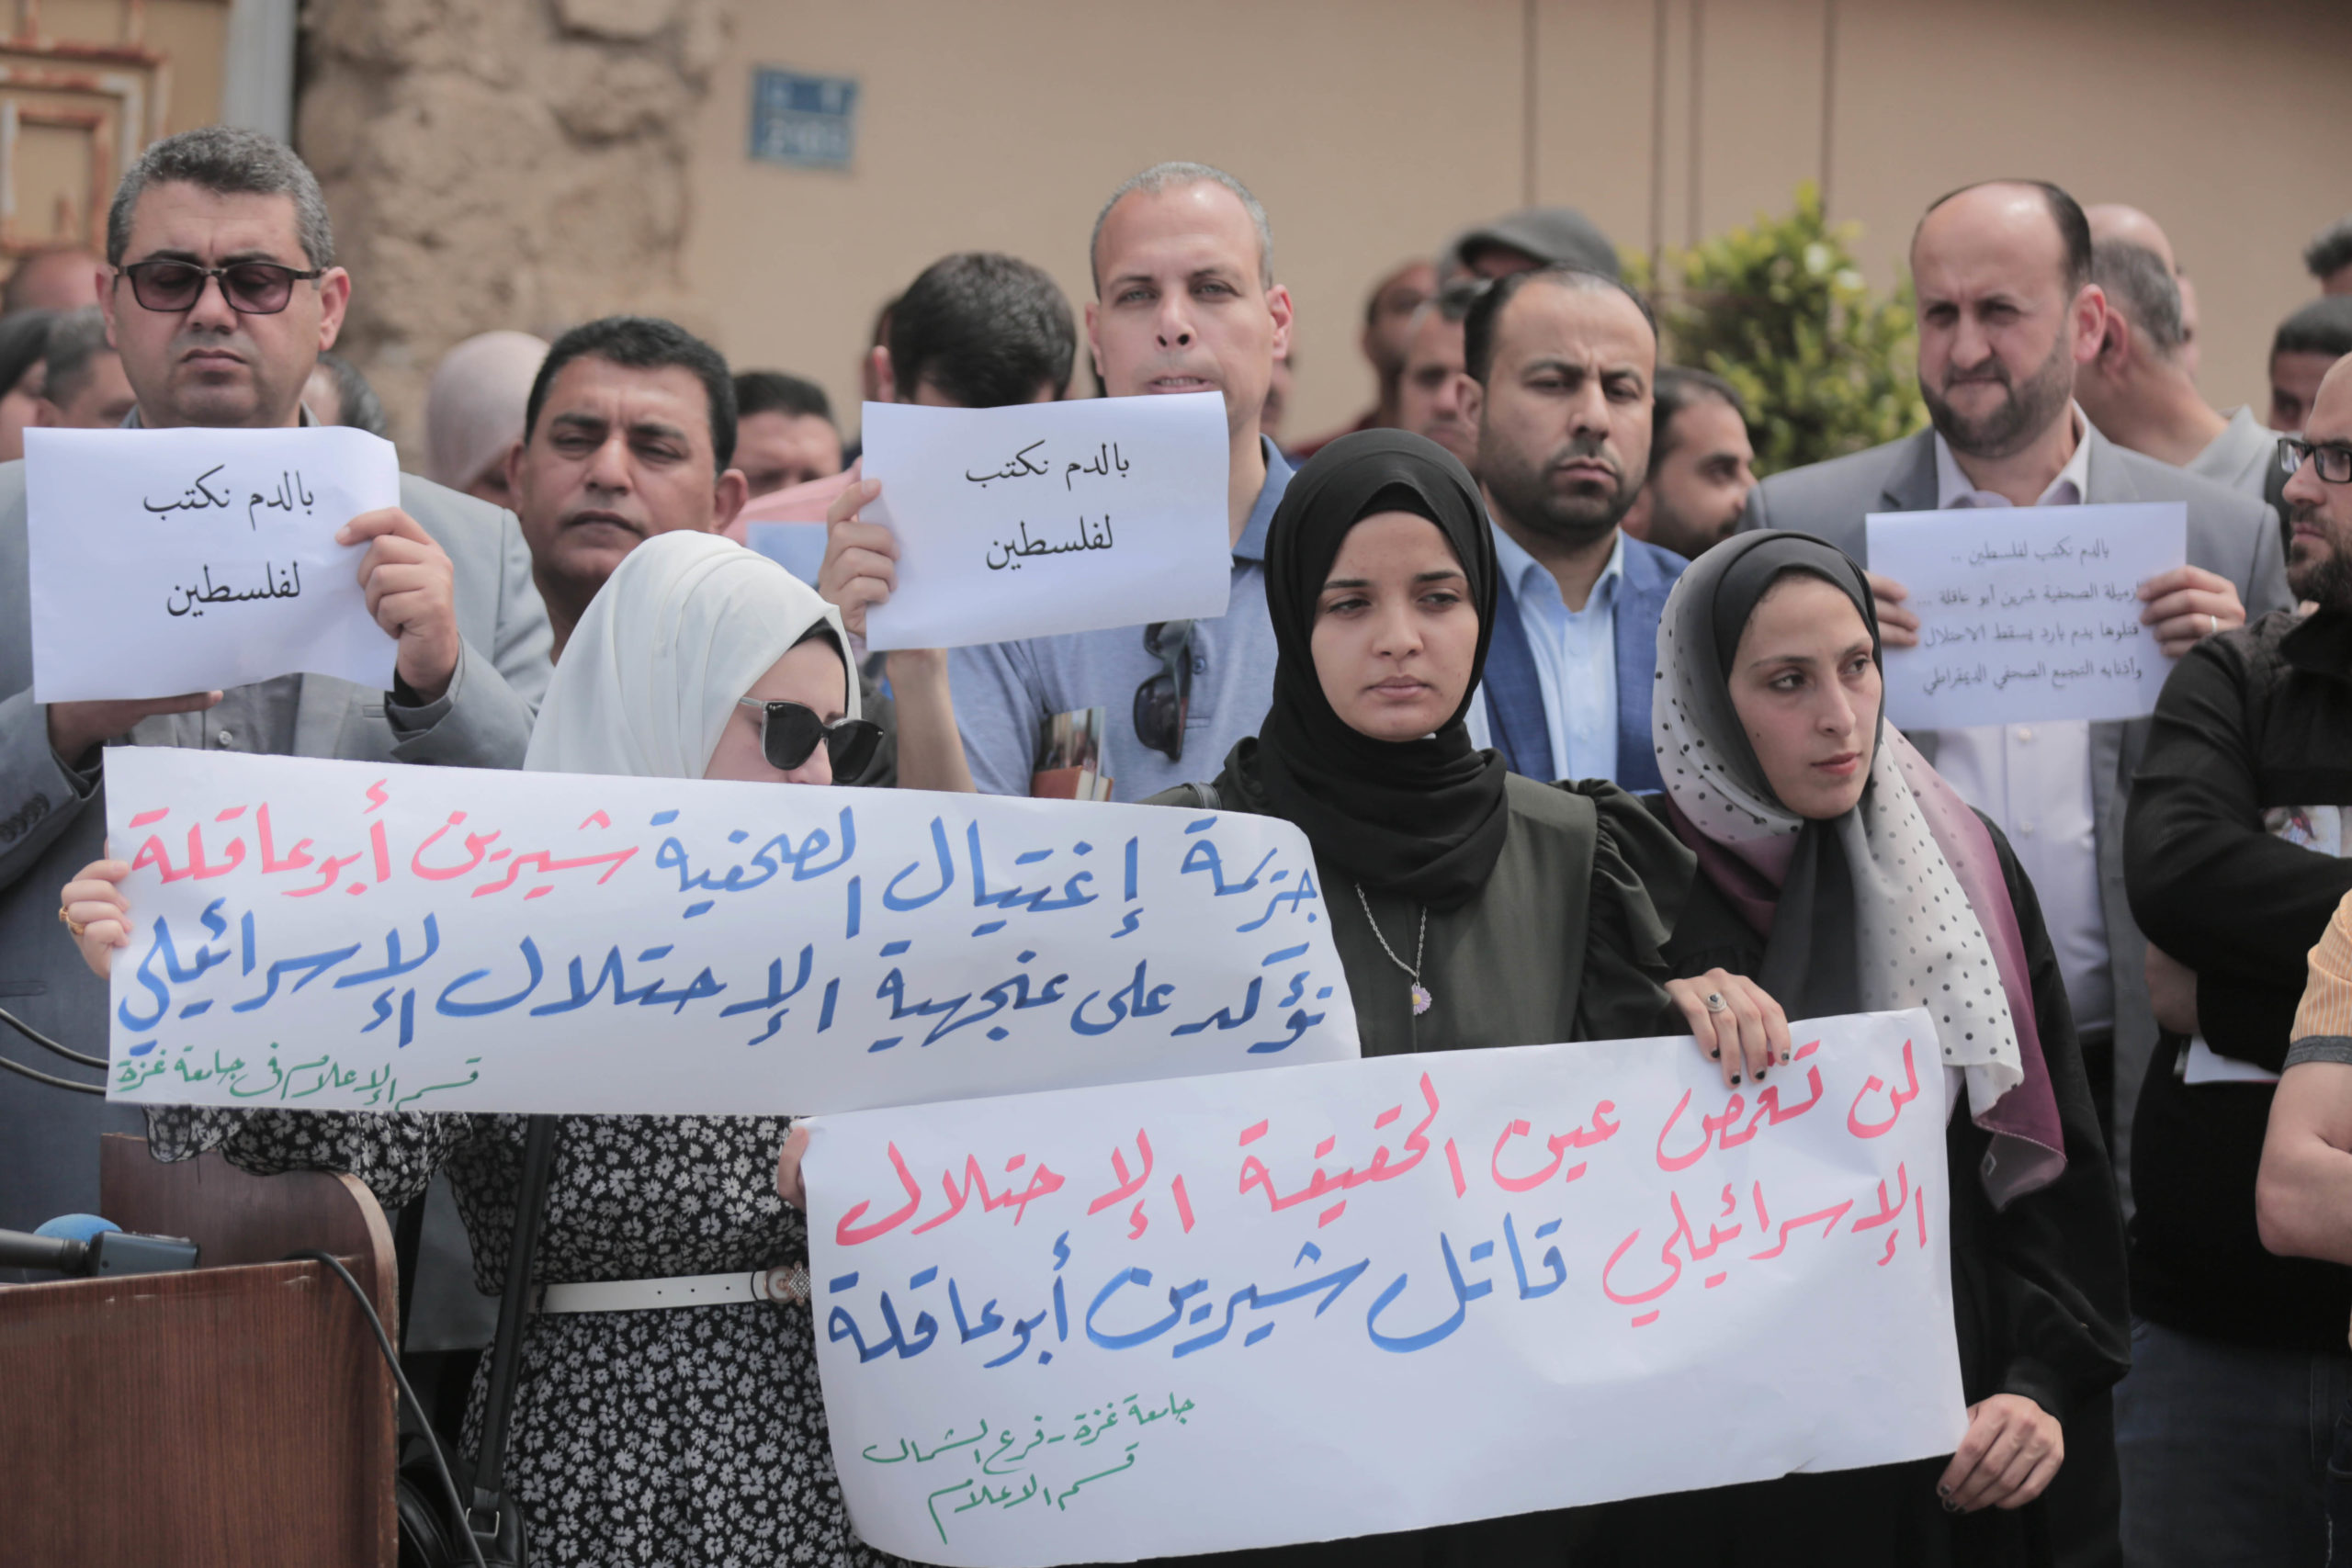 بالدم نكتب
لفلسطين
بالدم نكتب
لفلسطين
بالدم نكتب لفلسطين ..
لزميلة الصحفية شرين أبو عاقلة ...
قتلوها بدم بارد يسقط الاحتلال
وأذنابه التجمع الصحفي الديمقراطي
جريمة إغتيال الصحفية شيرين أبوعاقلة
تؤكد على عنجهية الإحتلال الإسرائيلي
قسم الإعلام في جامعة غزة
لن تغمض عين الحقيقة الإحتلال
الإسرائيلي قاتل شيرين أبوعاقلة
جامعة غزة - فرع الشمال
قسم الاعلام